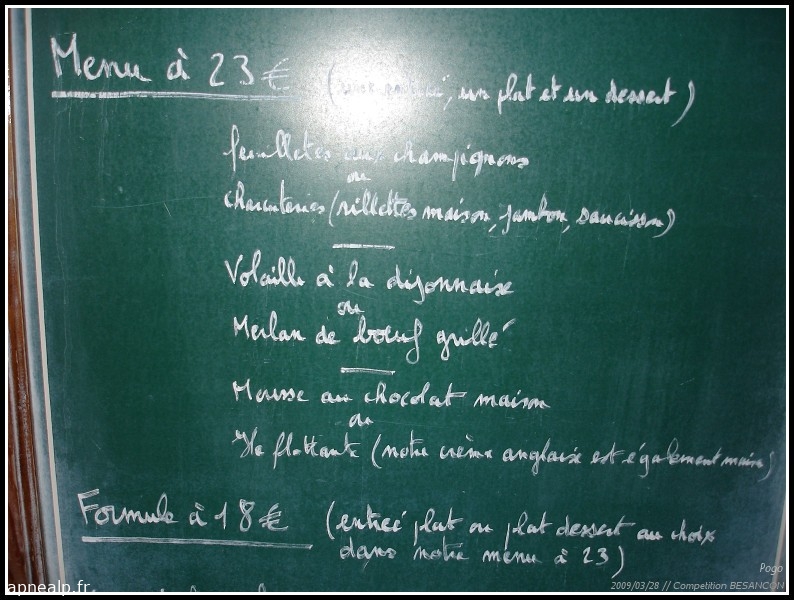 Menu à 23 €
(une entrée, un plat et un dessert)
feuilletés aux champignons
ou
charcuteries (rillettes maison, jambon, saucisson)
Volaille à la dijonnaise
ou
Merlan de bœuf grillé
Mousse au chocolat maison
ou
Ile flottante (notre crème anglaise est également maison)
Formule à 18 €
(entrée plat ou plat dessert au choix
dans notre menu à 23)
Pogo
apnealp.fr
2009/03/28 // Competition BESANCON